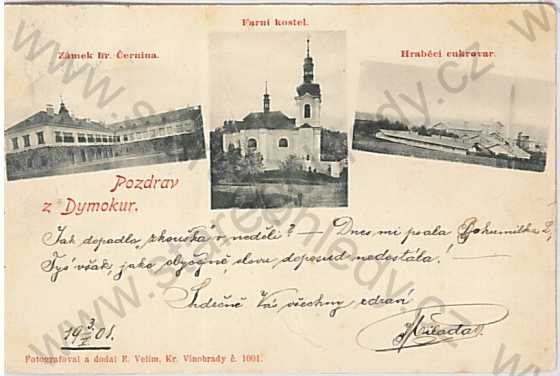 Farní kostel.
Zámek hr. Černina.
Hraběcí cukrovar.
Pozdrav
z Dymokur.
Jak dopadla zkouška v neděli? — Dnes mi psala Bohumilka
Tys však, jako obyčejně, slovu doposud nedostála! —
Srdečně Vás všechny zdraví
Milada
19 3/I 01.
Fotografoval a dodal E. Velím, Kr. Vinohrady č. 1001.
www.stare-pohledy.cz